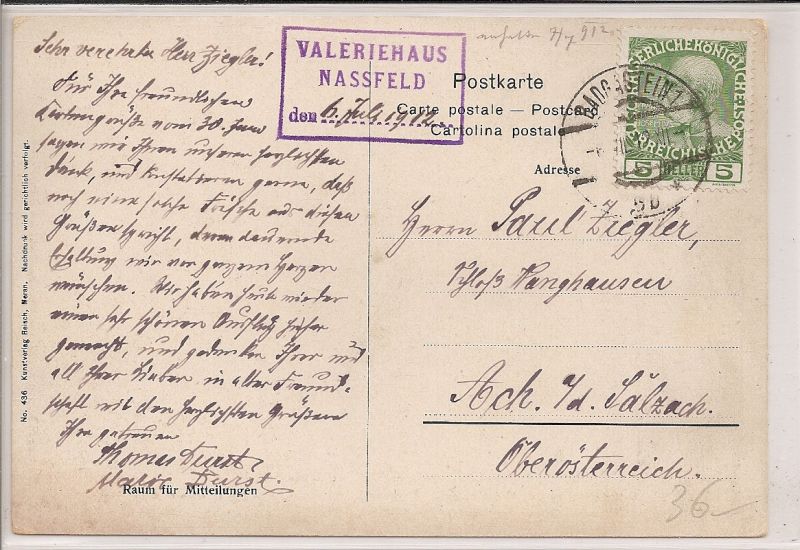 Sehr verehrter Herr Ziegler!
Für Ihre freundlichen
Kartengrüße vom 30. Juni
sagen wir Ihnen unseren herzlichsten
Dank, und konstatieren gerne, daß
noch eine solche Frische aus diesen
Grüßen spricht, deren dauernde
wir von ganzem Herzen
wünschen. Wir haben heute wieder
einen sehr schönen Ausflug hieher
gemacht, und gedenken Ihrer und
all Ihrer Lieben in alter Freund-
schaft mit den herzlichsten Grüßen
Ihre getreuen
Thomas Durst
Durst.
Raum für Mitteilungen
No. 436 Kunstverlag Reisch, Meran. Nachdruck wird gerichtlich verfolgt.
VALERIEHAUS
NASSFELD
den 6. Juli 1912.
912
Postkarte
Carte postale — Postcard
Cartolina postale
Adresse
BADGASTEIN 1
5 HELLER 5
Herrn Paul Ziegler,
Schloß Wanghausen
Ach. a/d. Salzach.
Oberösterreich.
36